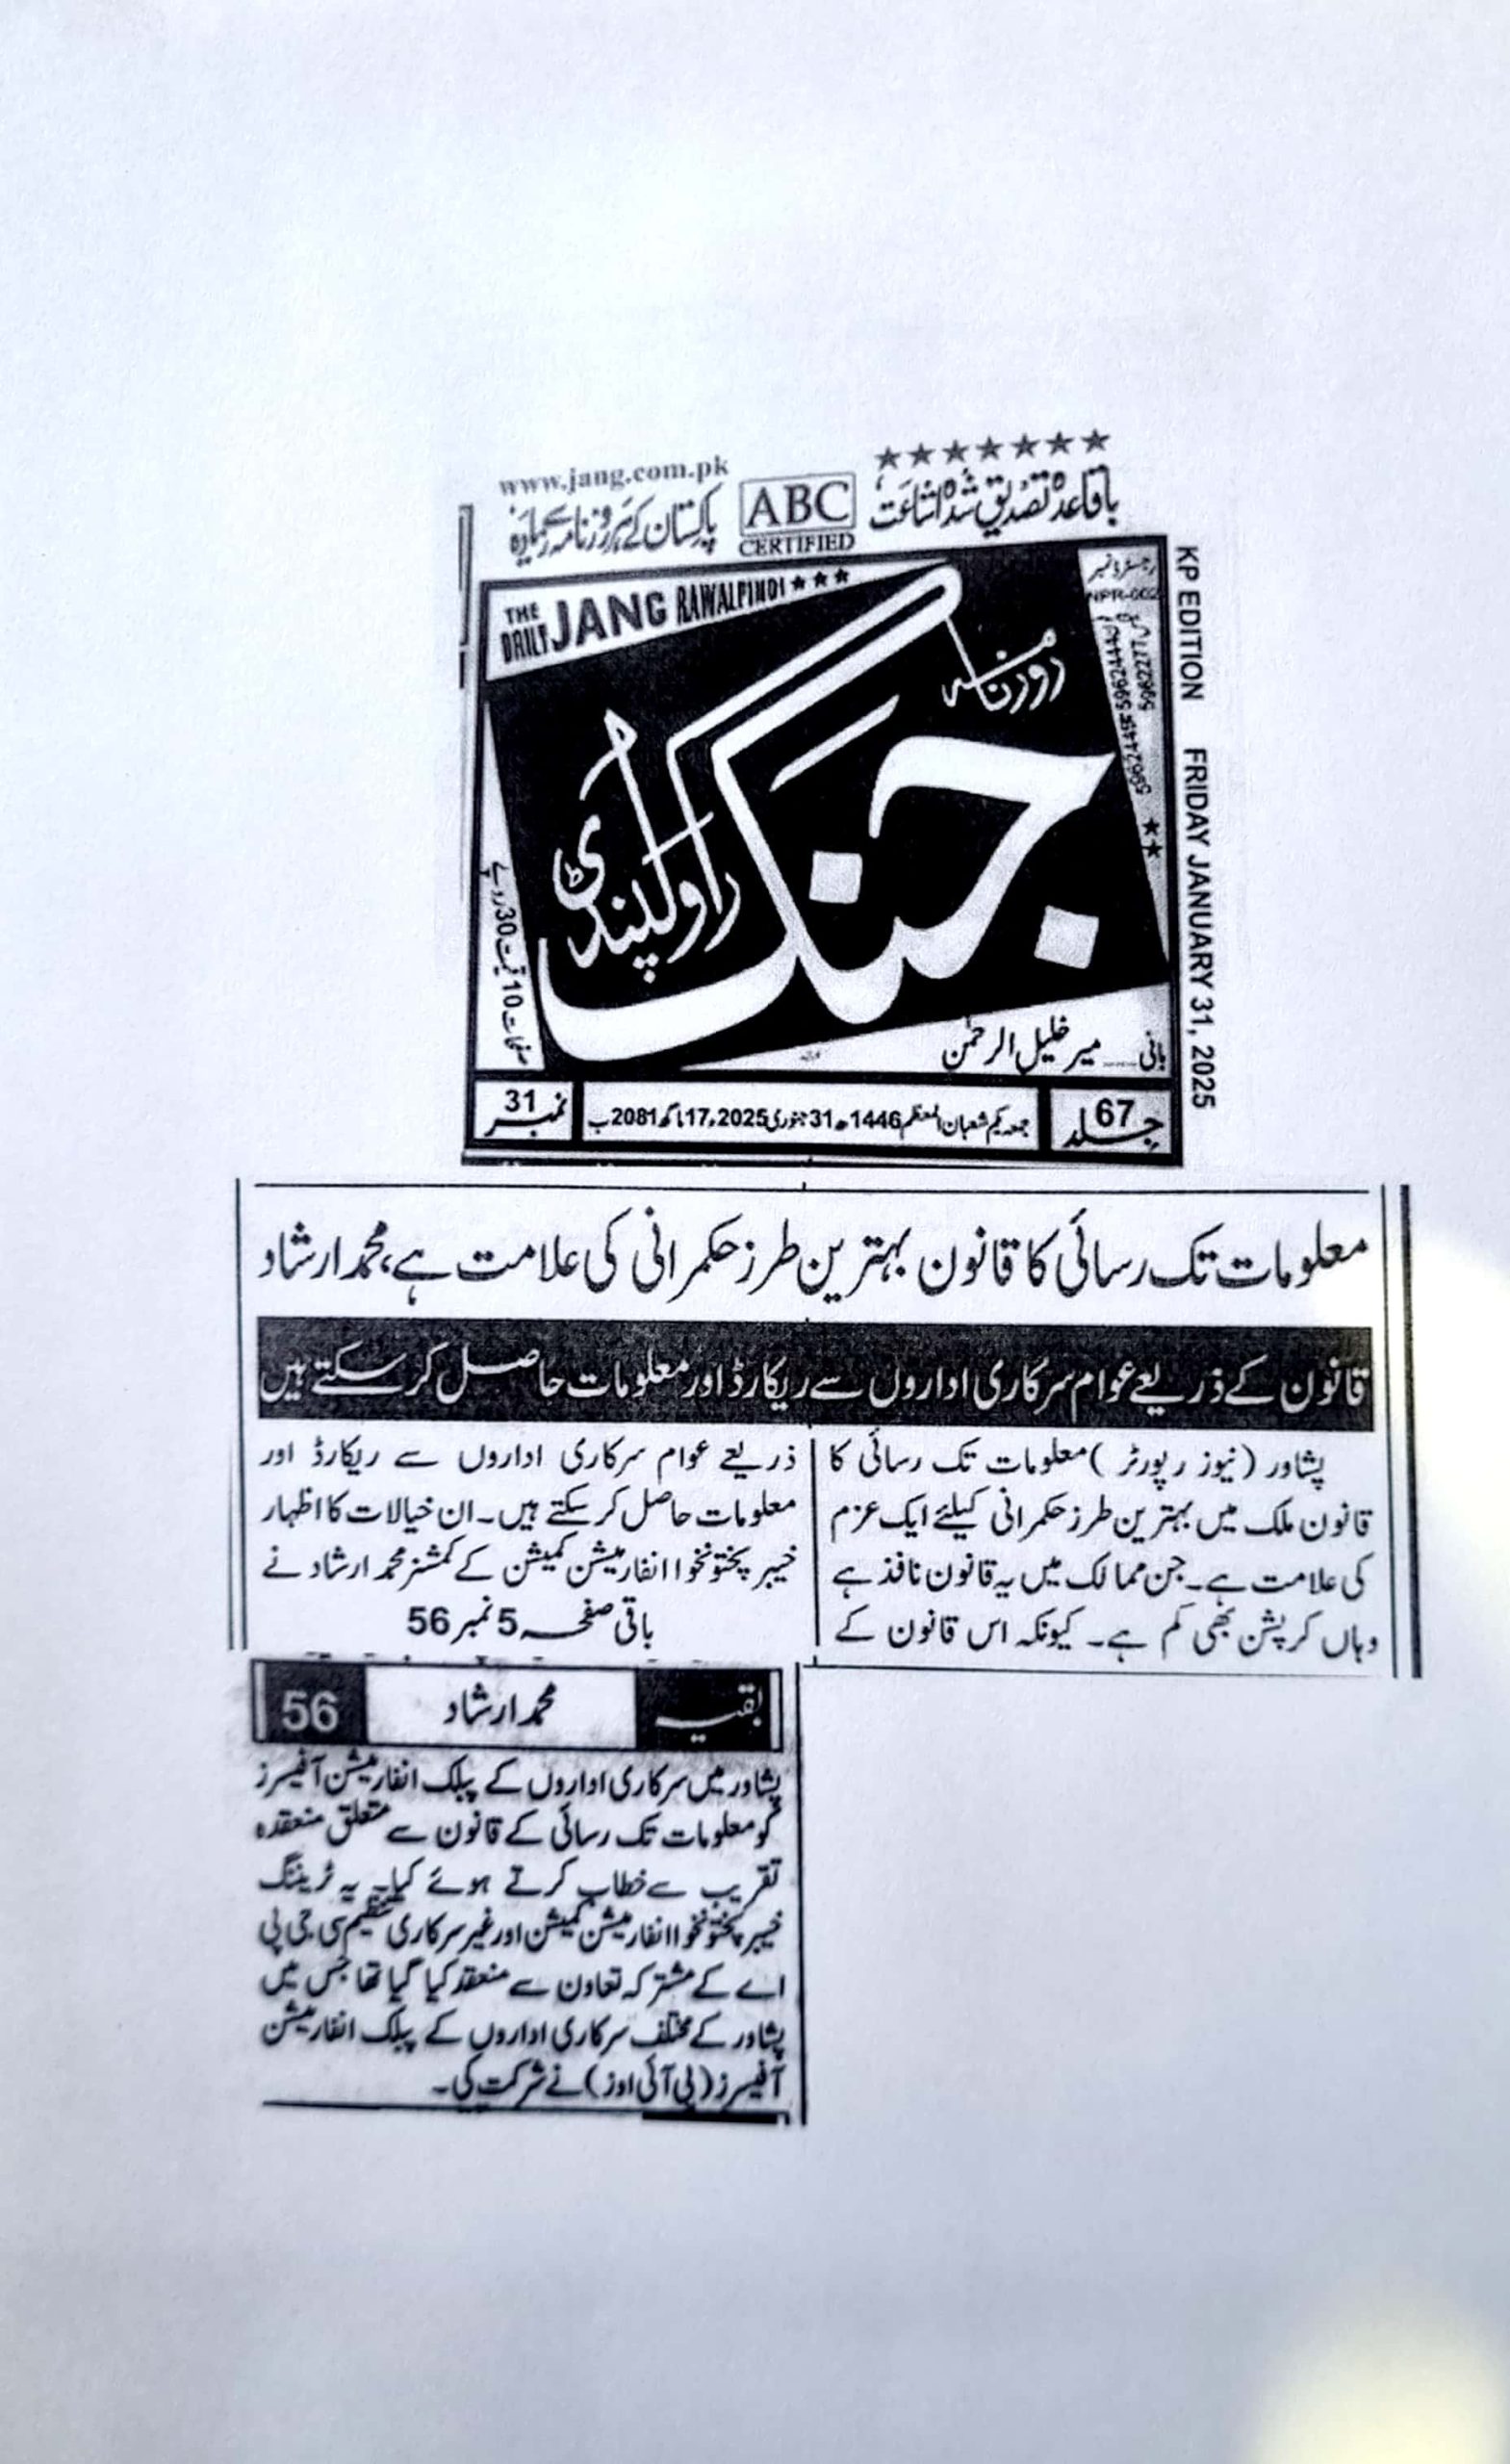 ★★★★★★★
باقاعدہ تصدیق شدہ اشاعت
ABC
CERTIFIED
www.jang.com.pk
پاکستان کے ہر روزنامہ سے زیادہ
THE DAILY JANG RAWALPINDI ★★★
رجسٹرڈ نمبر
NPR-002
روزنامہ
جنگ
راولپنڈی
صفحات 10 قیمت 30 روپے
بانی ---- میر خلیل الرحمٰن
KP EDITION FRIDAY JANUARY 31, 2025
جلد 67
جمعہ یکم شعبان المعظم 1446ھ 31 جنوری 2025ء 17 ماگھ 2081 ب
نمبر 31
معلومات تک رسائی کا قانون بہترین طرز حکمرانی کی علامت ہے، محمد ارشاد
قانون کے ذریعے عوام سرکاری اداروں سے ریکارڈ اور معلومات حاصل کر سکتے ہیں
پشاور (نیوز رپورٹر) معلومات تک رسائی کا
قانون ملک میں بہترین طرز حکمرانی کیلئے ایک عزم
کی علامت ہے۔ جن ممالک میں یہ قانون نافذ ہے
وہاں کرپشن بھی کم ہے۔ کیونکہ اس قانون کے
ذریعے عوام سرکاری اداروں سے ریکارڈ اور
معلومات حاصل کر سکتے ہیں۔ ان خیالات کا اظہار
خیبر پختونخوا انفارمیشن کمیشن کے کمشنر محمد ارشاد نے
باقی صفحہ 5 نمبر 56
بقیہ محمد ارشاد 56
پشاور میں سرکاری اداروں کے پبلک انفارمیشن آفیسرز
کو معلومات تک رسائی کے قانون سے متعلق منعقدہ
تقریب سے خطاب کرتے ہوئے کیا۔ یہ ٹریننگ
خیبر پختونخوا انفارمیشن کمیشن اور غیر سرکاری تنظیم سی جی پی
اے کے مشترکہ تعاون سے منعقد کیا گیا تھا جس میں
پشاور کے مختلف سرکاری اداروں کے پبلک انفارمیشن
آفیسرز (پی آئی اوز) نے شرکت کی۔